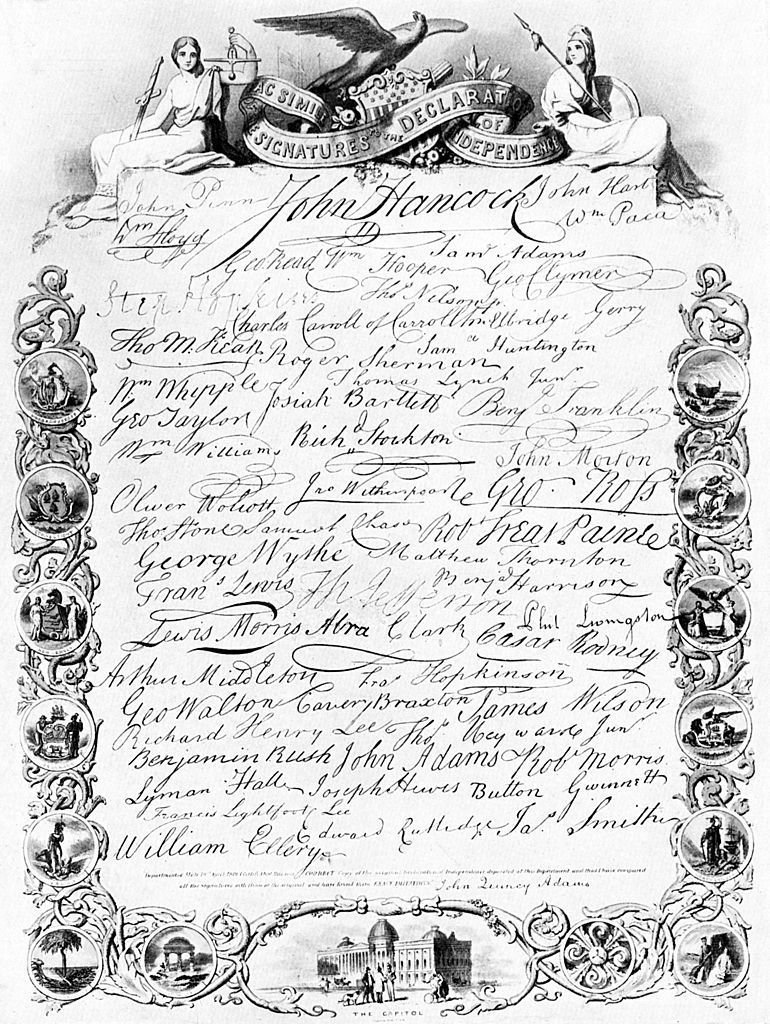 FAC SIMILE
OF THE SIGNATURES TO THE
DECLARATION
OF
INDEPENDENCE
John Penn John Hancock John Hart
Wm Floyd Wm Paca
Geo Read Wm Hooper Saml Adams
Geo Clymer
Step Hopkins Thos Nelson jr.
Charles Carroll of Carrollton Elbridge Gerry
Tho M.Kean Roger Sherman Saml Huntington
Wm Whipple Thomas Lynch Junr
Josiah Bartlett Benja Franklin
Geo Taylor Richd Stockton
Wm Williams John Morton
Oliver Wolcott Jno Witherspoon Geo. Ross
Thos. Stone Samuel Chase Robt Treat Paine
George Wythe Matthew Thornton
Frans Lewis Th Jefferson Benja Harrison
Lewis Morris Abra Clark Phil Livingston
Cæsar Rodney
Arthur Middleton Fras Hopkinson
Geo Walton Carter Braxton James Wilson
Richard Henry Lee Thos Heyward Junr
Benjamin Rush John Adams Robt Morris
Lyman Hall Joseph Hewes Button Gwinnett
Francis Lightfoot Lee
William Ellery Edward Rutledge Jas Smith
Department of State, 19th April, 1819. I Certify, that this is a CORRECT Copy of the original Declaration of Independence, deposited at this Department, and that I have compared
all the signatures with those of the original, and have found them EXACT IMITATIONS. John Quincy Adams
THE CAPITOL